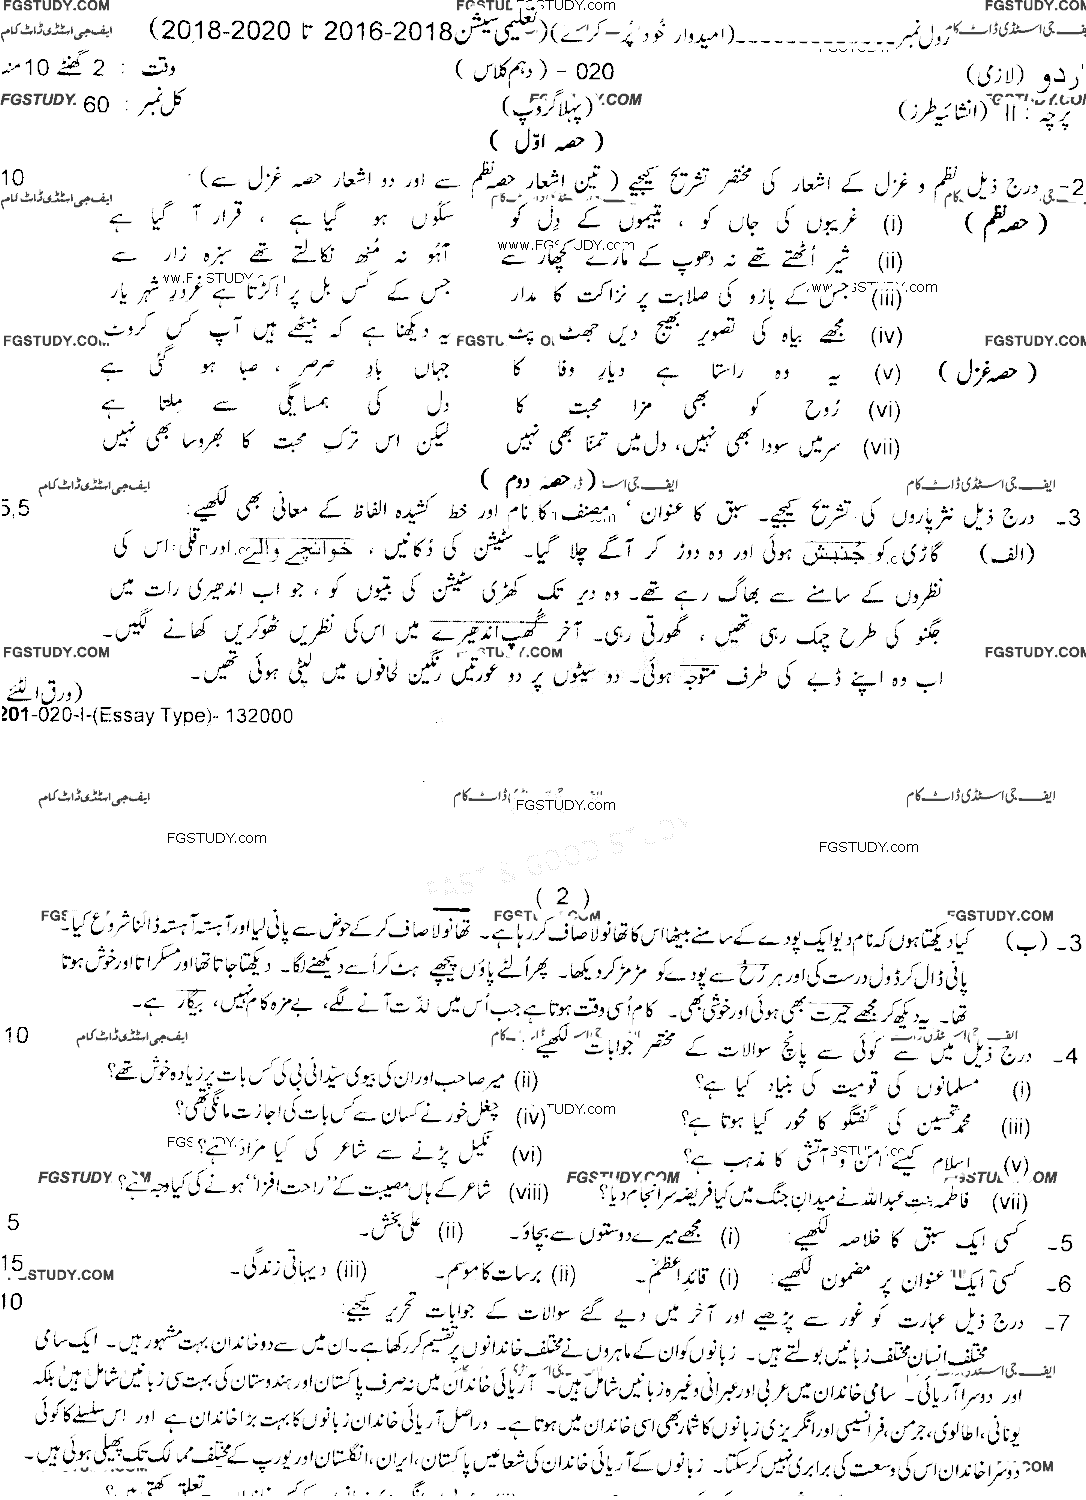 رول نمبر ـــــــــــــــــ (امیدوار خود پُر کرے) (تعلیمی سیشن 2018-2016 تا 2020-2018)
اُردو (لازمی) 020 - (دہم کلاس) وقت : 2 گھنٹے 10 منٹ
پرچہ : II (انشائیہ طرز) (پہلا گروپ) کل نمبر : 60
( حصہ اوّل )
2- درج ذیل نظم و غزل کے اشعار کی مختصر تشریح کیجیے (تین اشعار حصہ نظم سے اور دو اشعار حصہ غزل سے) 10
(حصہ نظم) (i) غریبوں کی جاں کو ، یتیموں کے دِل کو سکوں ہو گیا ہے ، قرار آ گیا ہے
(ii) شیر اُٹھتے تھے نہ دھوپ کے مارے کچھار سے آہُو نہ مُنھ نکالتے تھے سبزہ زار سے
(iii) جس کے بازو کی صلابت پر نزاکت کا مدار جس کے کس بل پر اکڑتا ہے غرورِ شہر یار
(iv) مجھے بیاہ کی تصویر بھیج دیں جھٹ پٹ یہ دیکھنا ہے کہ بیٹھے ہیں آپ کس کروٹ
(حصہ غزل) (v) یہ وہ راستا ہے دیارِ وفا کا جہاں بادِ صرصر ، صبا ہو گئی ہے
(vi) رُوح کو بھی مزا محبت کا دل کی ہمسایگی سے ملتا ہے
(vii) سر میں سودا بھی نہیں، دل میں تمنّا بھی نہیں لیکن اس ترکِ محبت کا بھروسا بھی نہیں
( حصہ دوم )
3- درج ذیل نثر پاروں کی تشریح کیجیے۔ سبق کا عنوان ، مصنف کا نام اور خط کشیدہ الفاظ کے معانی بھی لکھیے: 5,5
(الف) گاڑی کو جُنبش ہوئی اور وہ دوڑ کر آگے چلا گیا۔ سٹیشن کی دُکانیں ، خوانچے والے اور قلی اس کی
نظروں کے سامنے سے بھاگ رہے تھے۔ وہ دیر تک کھڑی سٹیشن کی بتیوں کو ، جو اب اندھیری رات میں
جگنو کی طرح چمک رہی تھیں ، گھورتی رہی۔ آخر گھپ اندھیرے میں اس کی نظریں ٹھوکریں کھانے لگیں۔
اب وہ اپنے ڈبے کی طرف متوجّہ ہوئی۔ دو سیٹوں پر دو عورتیں رنگین لحافوں میں لپٹی ہوئی تھیں۔
(ورق اُلٹیے)
201-020-I-(Essay Type)- 132000
( 2 )
3- (ب) کیا دیکھتا ہوں کہ نام دیو ایک پودے کے سامنے بیٹھا اس کا تھانولا صاف کر رہا ہے۔ تھانولا صاف کر کے حوض سے پانی لیا اور آہستہ آہستہ ڈالنا شروع کیا۔
پانی ڈال کر ڈول درست کی اور ہر رُخ سے پودے کو مڑ مڑ کر دیکھا۔ پھر اُلٹے پاؤں پیچھے ہٹ کر اُسے دیکھنے لگا۔ دیکھتا جاتا تھا اور مسکراتا اور خوش ہوتا
تھا۔ یہ دیکھ کر مجھے حیرت بھی ہوئی اور خوشی بھی۔ کام اُسی وقت ہوتا ہے جب اُس میں لذّت آنے لگے، بے مزہ کام نہیں، بیگار ہے۔
4- درج ذیل میں سے کوئی سے پانچ سوالات کے مختصر جوابات لکھیے: 10
(i) مسلمانوں کی قومیت کی بنیاد کیا ہے؟ (ii) میر صاحب اور ان کی بیوی سیّدانی بی کی کس بات پر زیادہ خوش تھے؟
(iii) محمد حسین کی گفتگو کا محور کیا ہوتا ہے؟ (iv) چغل خور نے کسان سے کس بات کی اجازت مانگی تھی؟
(v) اسلام کیسے امن و آشتی کا مذہب ہے؟ (vi) نکیل پڑنے سے شاعر کی کیا مراد ہے؟
(vii) فاطمہ بنت عبداللہ نے میدانِ جنگ میں کیا فریضہ سرانجام دیا؟ (viii) شاعر کے ہاں مصیبت کے "راحت افزا" ہونے کی کیا وجہ ہے؟
5- کسی ایک سبق کا خلاصہ لکھیے: (i) مجھے میرے دوستوں سے بچاؤ۔ (ii) علی بخش۔ 5
6- کسی ایک عنوان پر مضمون لکھیے: (i) قائدِاعظمؒ۔ (ii) برسات کا موسم۔ (iii) دیہاتی زندگی۔ 15
7- درج ذیل عبارت کو غور سے پڑھیے اور آخر میں دیے گئے سوالات کے جوابات تحریر کیجیے: 10
مختلف انسان مختلف زبانیں بولتے ہیں۔ زبانوں کو ان کے ماہروں نے مختلف خاندانوں پر تقسیم کر رکھا ہے۔ ان میں سے دو خاندان بہت مشہور ہیں۔ ایک سامی
اور دوسرا آریائی۔ سامی خاندان میں عربی اور عبرانی وغیرہ زبانیں شامل ہیں۔ آریائی خاندان میں نہ صرف پاکستان اور ہندوستان کی بہت سی زبانیں شامل ہیں بلکہ
یونانی، اطالوی، جرمن، فرانسیسی اور انگریزی زبانوں کا شمار بھی اسی خاندان میں ہوتا ہے۔ دراصل آریائی خاندان زبانوں کا بہت بڑا خاندان ہے اور اس سلسلے کا کوئی
دوسرا خاندان اس کی وسعت کی برابری نہیں کر سکتا۔ زبانوں کے آریائی خاندان کی شعاعیں پاکستان، ایران، انگلستان اور یورپ کے مختلف ممالک تک پھیلی ہوئی ہیں۔